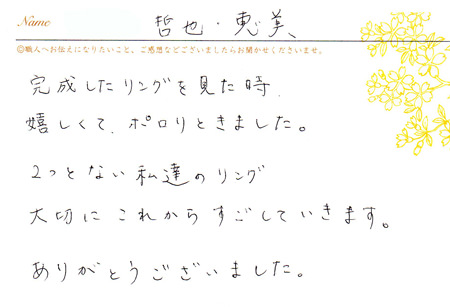 Name 哲也・恵美
◎職人へお伝えになりたいこと、ご感想などございましたらお聞かせくださいませ。
完成したリングを見た時、
嬉しくて、ポロリときました。
2つとない私達のリング
大切にこれからすごしていきます。
ありがとうございました。